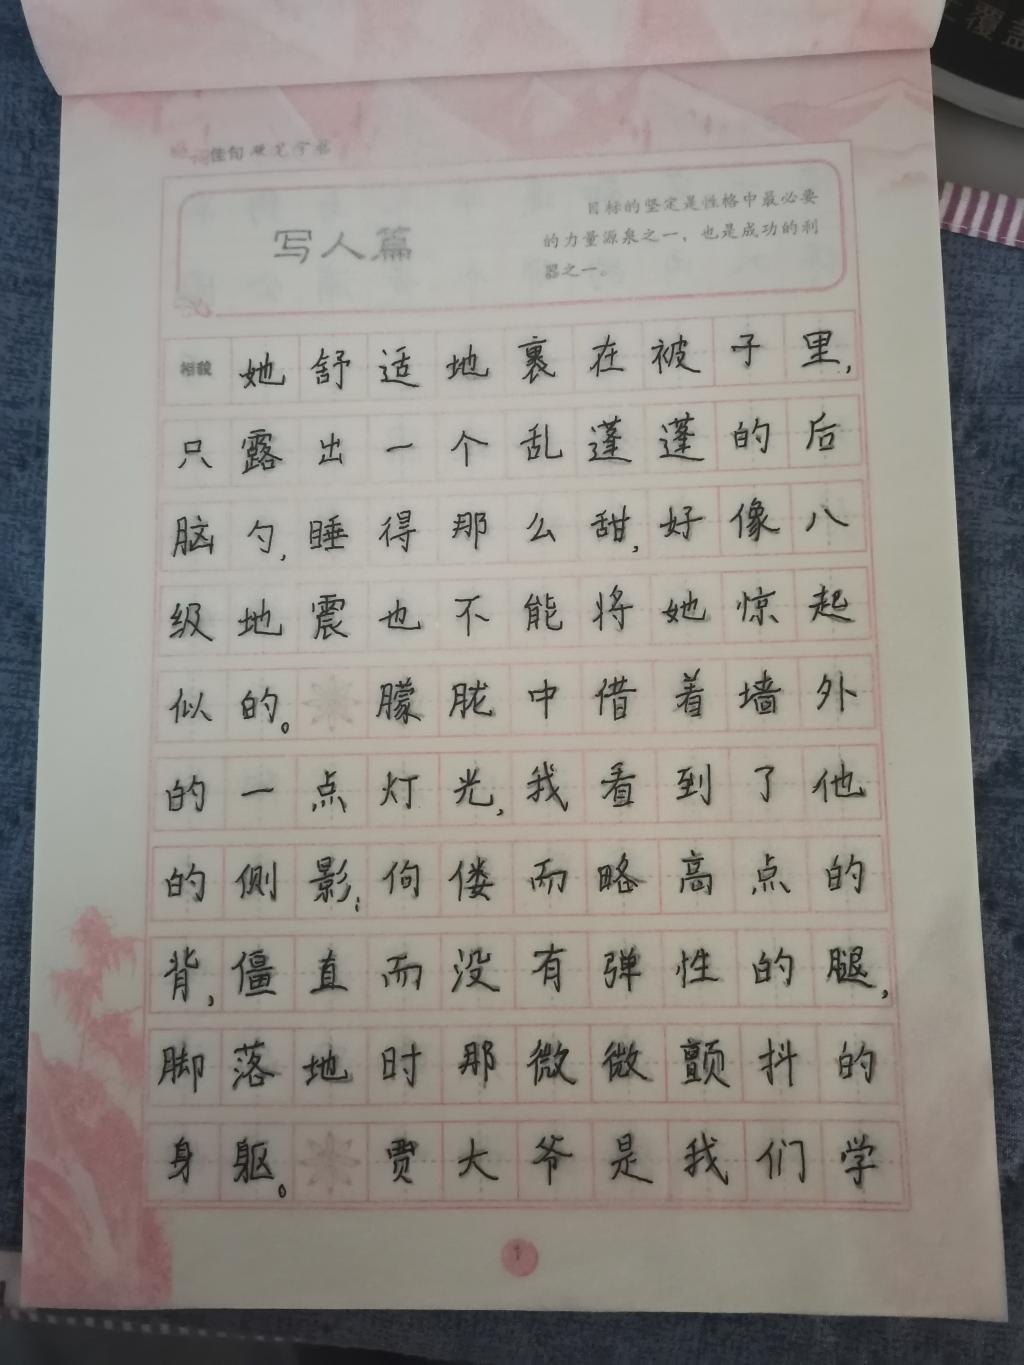 佳句硬笔字帖
写人篇
目标的坚定是性格中最必要
的力量源泉之一，也是成功的利
器之一。
相貌 她舒适地裹在被子里，
只露出一个乱蓬蓬的后
脑勺，睡得那么甜，好像八
级地震也不能将她惊起
似的。 朦胧中借着墙外
的一点灯光，我看到了他
的侧影；佝偻而略高点的
背，僵直而没有弹性的腿，
脚落地时那微微颤抖的
身躯。 贾大爷是我们学
1
覆盖